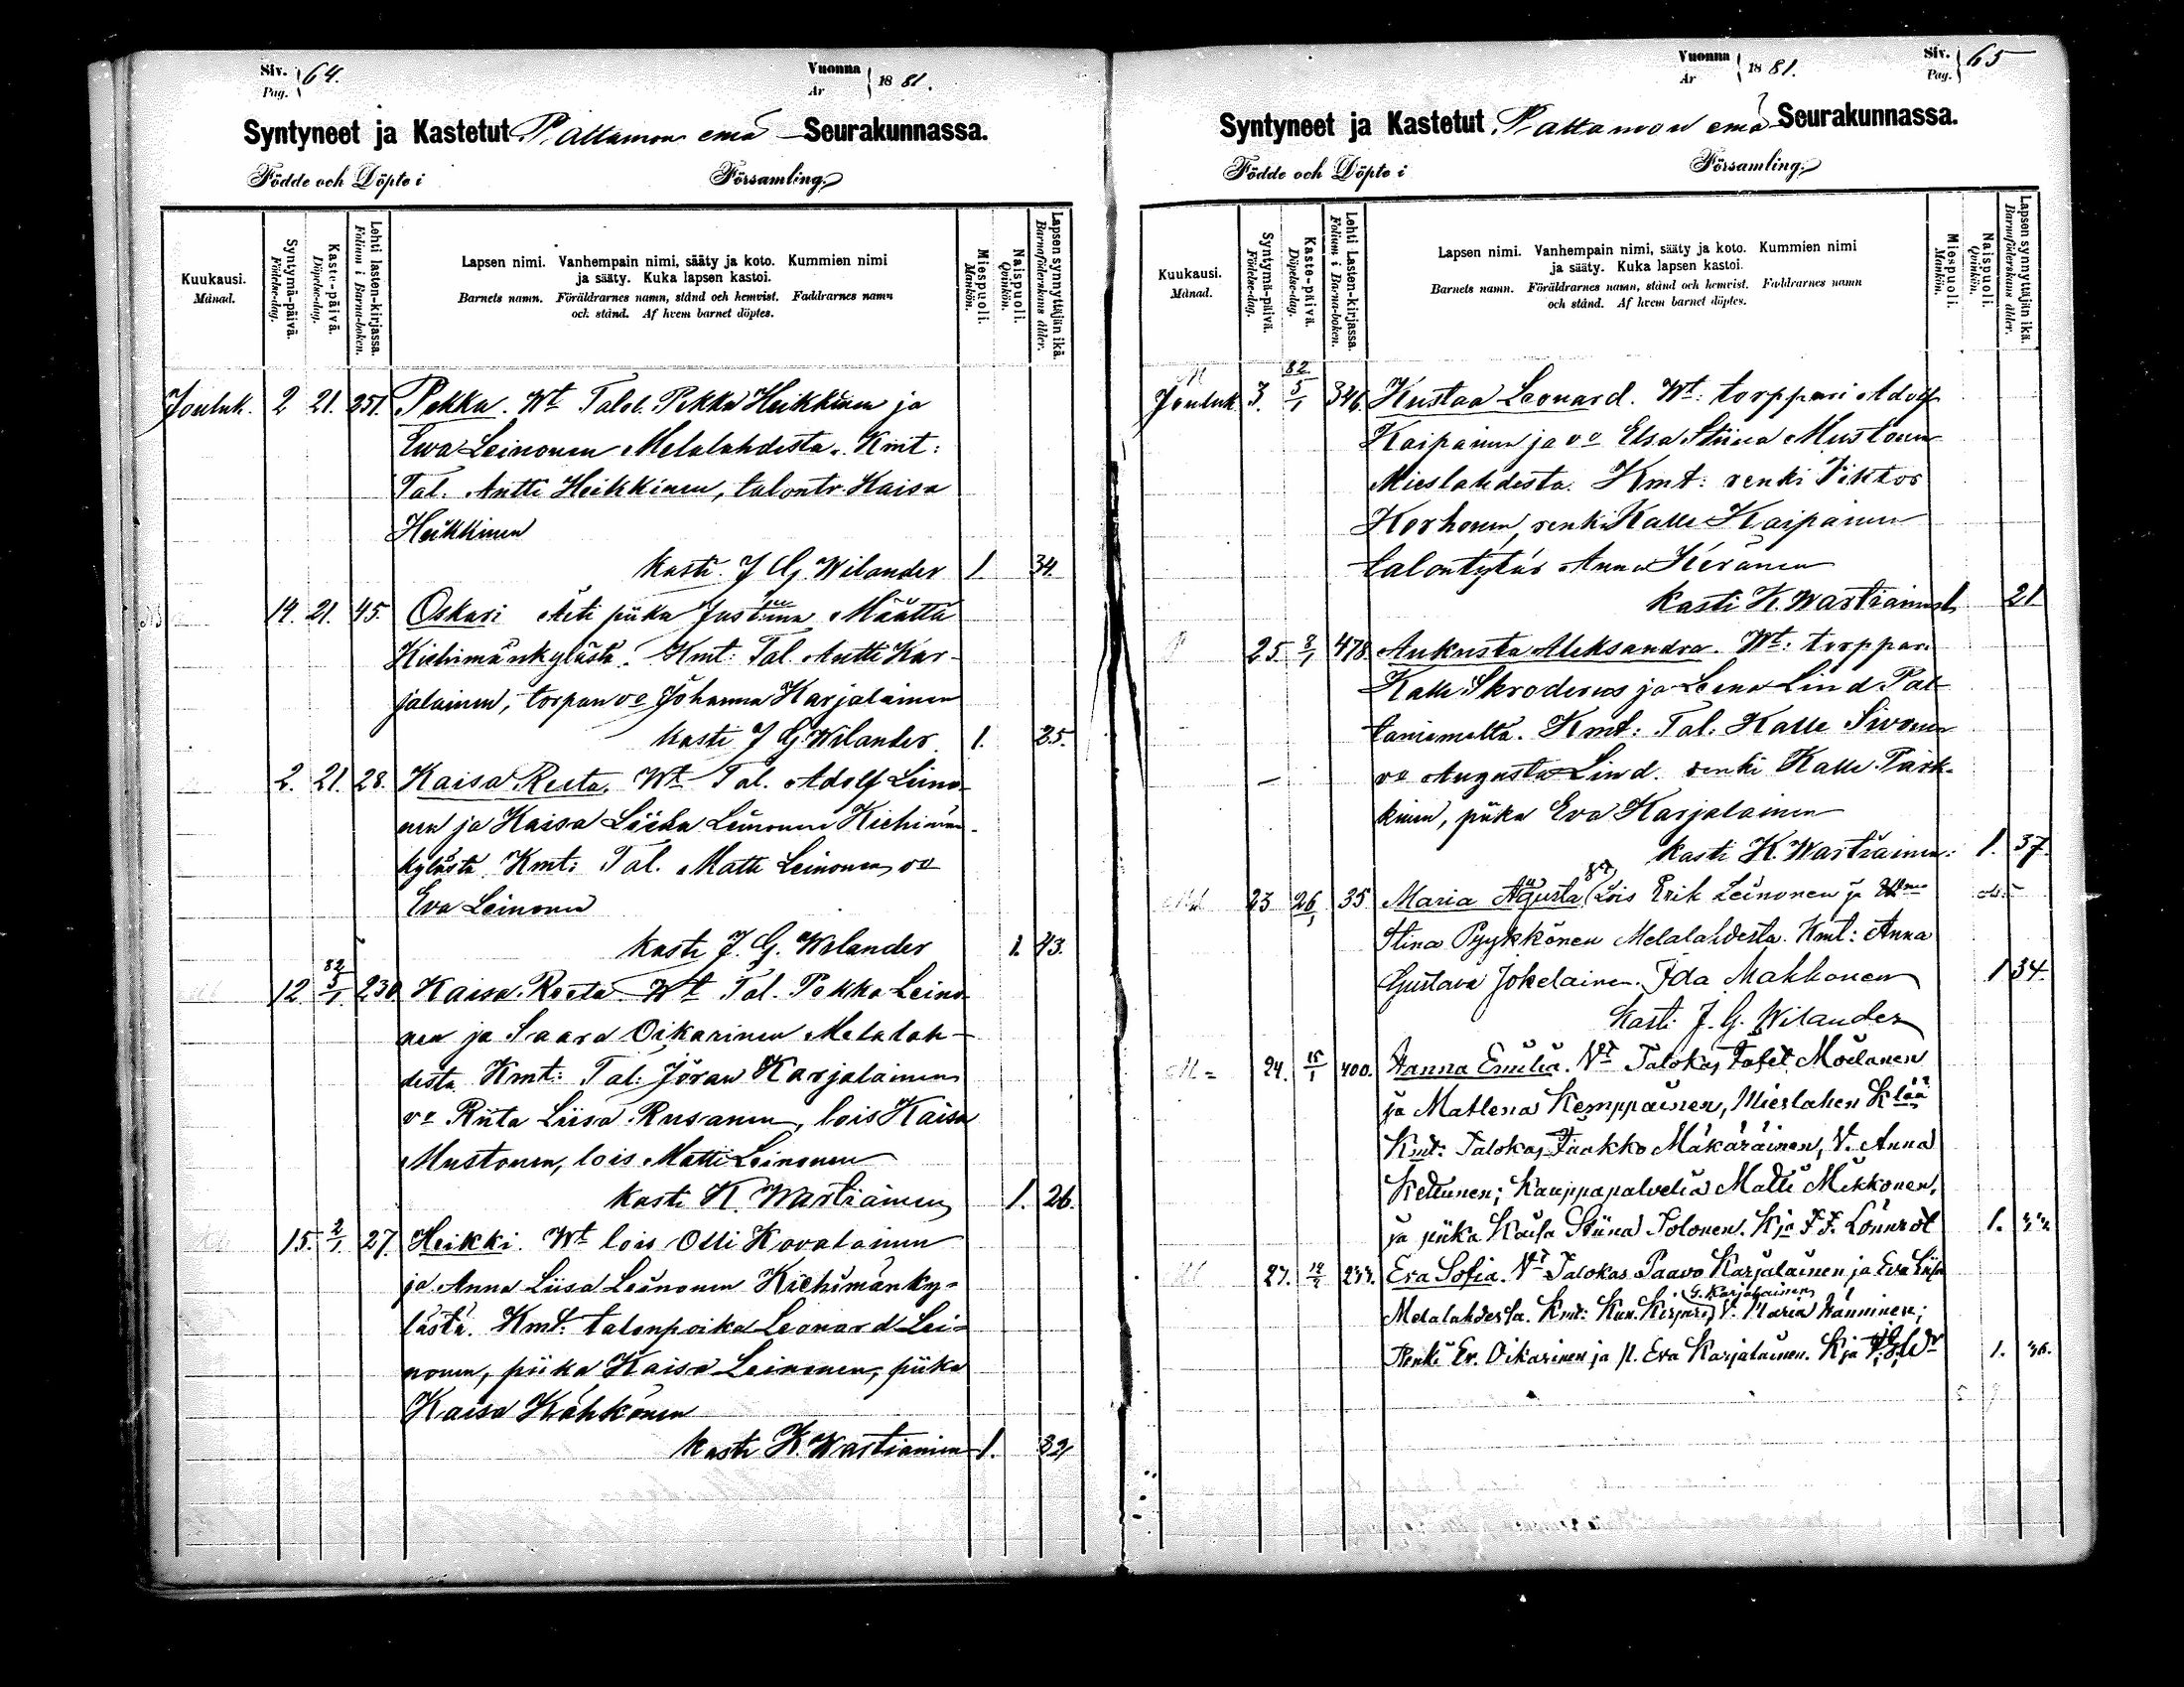 Siv. Pag. 64.
Vuonna År 1881.
Syntyneet ja Kastetut Paltamon emä Seurakunnassa.
Födde och Döpte i Församling.
Kuukausi. Månad.
Syntymä-päivä. Födelse-dag.
Kaste-päivä. Döpelse-dag.
Lehti lasten-kirjassa. Folium i Barna-boken.
Lapsen nimi. Vanhempain nimi, sääty ja koto. Kummien nimi
ja sääty. Kuka lapsen kastoi.
Barnets namn. Föräldrarnes namn, stånd och hemvist. Faddrarnes namn
och stånd. Af hvem barnet döptes.
Miespuoli. Mankön.
Naispuoli. Qvinkön.
Lapsen synnyttäjän ikä. Barnaföderskans ålder.
Jouluk. 2 21. 251. Pekka. Wt Talol. Pekka Heikkinen ja
Ewa Leinonen Melalahdesta. Kmt:
Tal. Antti Heikkinen, talontr. Kaisa
Heikkinen
kasti J G Wilander 1. 34.
14. 21. 45. Oskari Äiti piika Justiina Määttä
Kiehimänkylästä. Kmt: Tal. Antti Kar-
jalainen, torpan vo Johanna Karjalainen
kasti J G Wilander. 1. 25.
2. 21. 28. Kaisa Reeta. Wt Tal. Adolf Leino-
nen ja Kaisa Liisa Leinonen Kiehimän-
kylästä Kmt: Tal. Matti Leinonen, vo
Eva Leinonen
kasti J. G. Wilander 1. 43.
12. 82 5/1 230 Kaisa Reeta Wt Tal. Pekka Leino-
nen ja Saara Oikarinen Melalah-
desta Kmt: Tal: Jöran Karjalainen
vo Riita Liisa Rusanen, lois Kaisa
Mustonen, lois Matti Leinonen
kasti K. Wartiainen 1. 26.
15. 2/1 27. Heikki. Wt lois Olli Kovalainen
ja Anna Liisa Leinonen Kiehimänky-
lästä. Kmt: talonpoika Leonard Lei-
nonen, piika Kaisa Leinonen, piika
Kaisa Kähkönen
kasti K. Wartiainen 1. 32
Vuonna År 1881.
Siv. Pag. 65
Syntyneet ja Kastetut Paltamon emä Seurakunnassa.
Födde och Döpte i Församling.
Kuukausi. Månad.
Syntymä-päivä. Födelse-dag.
Kaste-päivä. Döpelse-dag.
Lehti Lasten-kirjassa. Folium i Barna-boken.
Lapsen nimi. Vanhempain nimi, sääty ja koto. Kummien nimi
ja sääty. Kuka lapsen kastoi.
Barnets namn. Föräldrarnes namn, stånd och hemvist. Faddrarnes namn
och stånd. Af hvem barnet döptes.
Miespuoli. Mankön.
Naispuoli. Qvinkön.
Lapsen synnyttäjän ikä. Barnaföderskans ålder.
Jouluk 3. 82 5/1 346. Kustaa Leonard. Wt: torppari Adolf
Kaipainen ja vo Elsa Stiina Mustonen
Mieslahdesta. Kmt: renki Viktor
Korhonen, renki Kalle Kaipainen
talontytär Anna Keränen
kasti K. Wartiainen 1. 21.
25. 478. Aukusta Aleksandra. Wt: torppari
Kalle Skroderus ja Leena Lind Pal-
taniemeltä. Kmt: Tal: Kalle Sivonen
vo Augusta Lind. renki Kalle Pärk-
kinen, piika Eva Karjalainen
kasti K. Wartiainen. 1. 37.
23 26/1 35 Maria Agusta Lois Erik Leinonen ja
Stina Pyykkönen Melalahdesta. Kmt: Anna
Gustava Jokelainen. Ida Makkonen 1 34.
Kasti J. G. Wilander
M 24. 15/1 400. Hanna Emilia. Vt Talokas Tafet Moilanen
ja Matlena Kemppainen, Mieslahen
Kmt: Talokas Jaakko Mäkäräinen, V. Anna
Kettunen; Kauppapalvelia Matti Mikkonen,
ja piika Kaisa Stiina Tolonen. Kja F. F. Lönnrot 1.
27. 233. Eva Sofia. Vt Talokas Paavo Karjalainen ja Eva Liisa
G. Karjalainen
Melalahdesta. Kmt: Kun. Kirjuri V. Maria Wänninen;
Renki Er. Oikarinen ja p. Eva Karjalainen. Kja 1. 36.
5 9